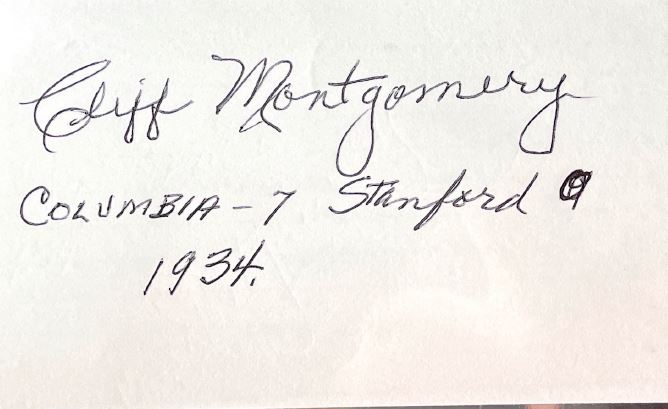 Cliff Montgomery
COLUMBIA - 7 Stanford 0
1934.